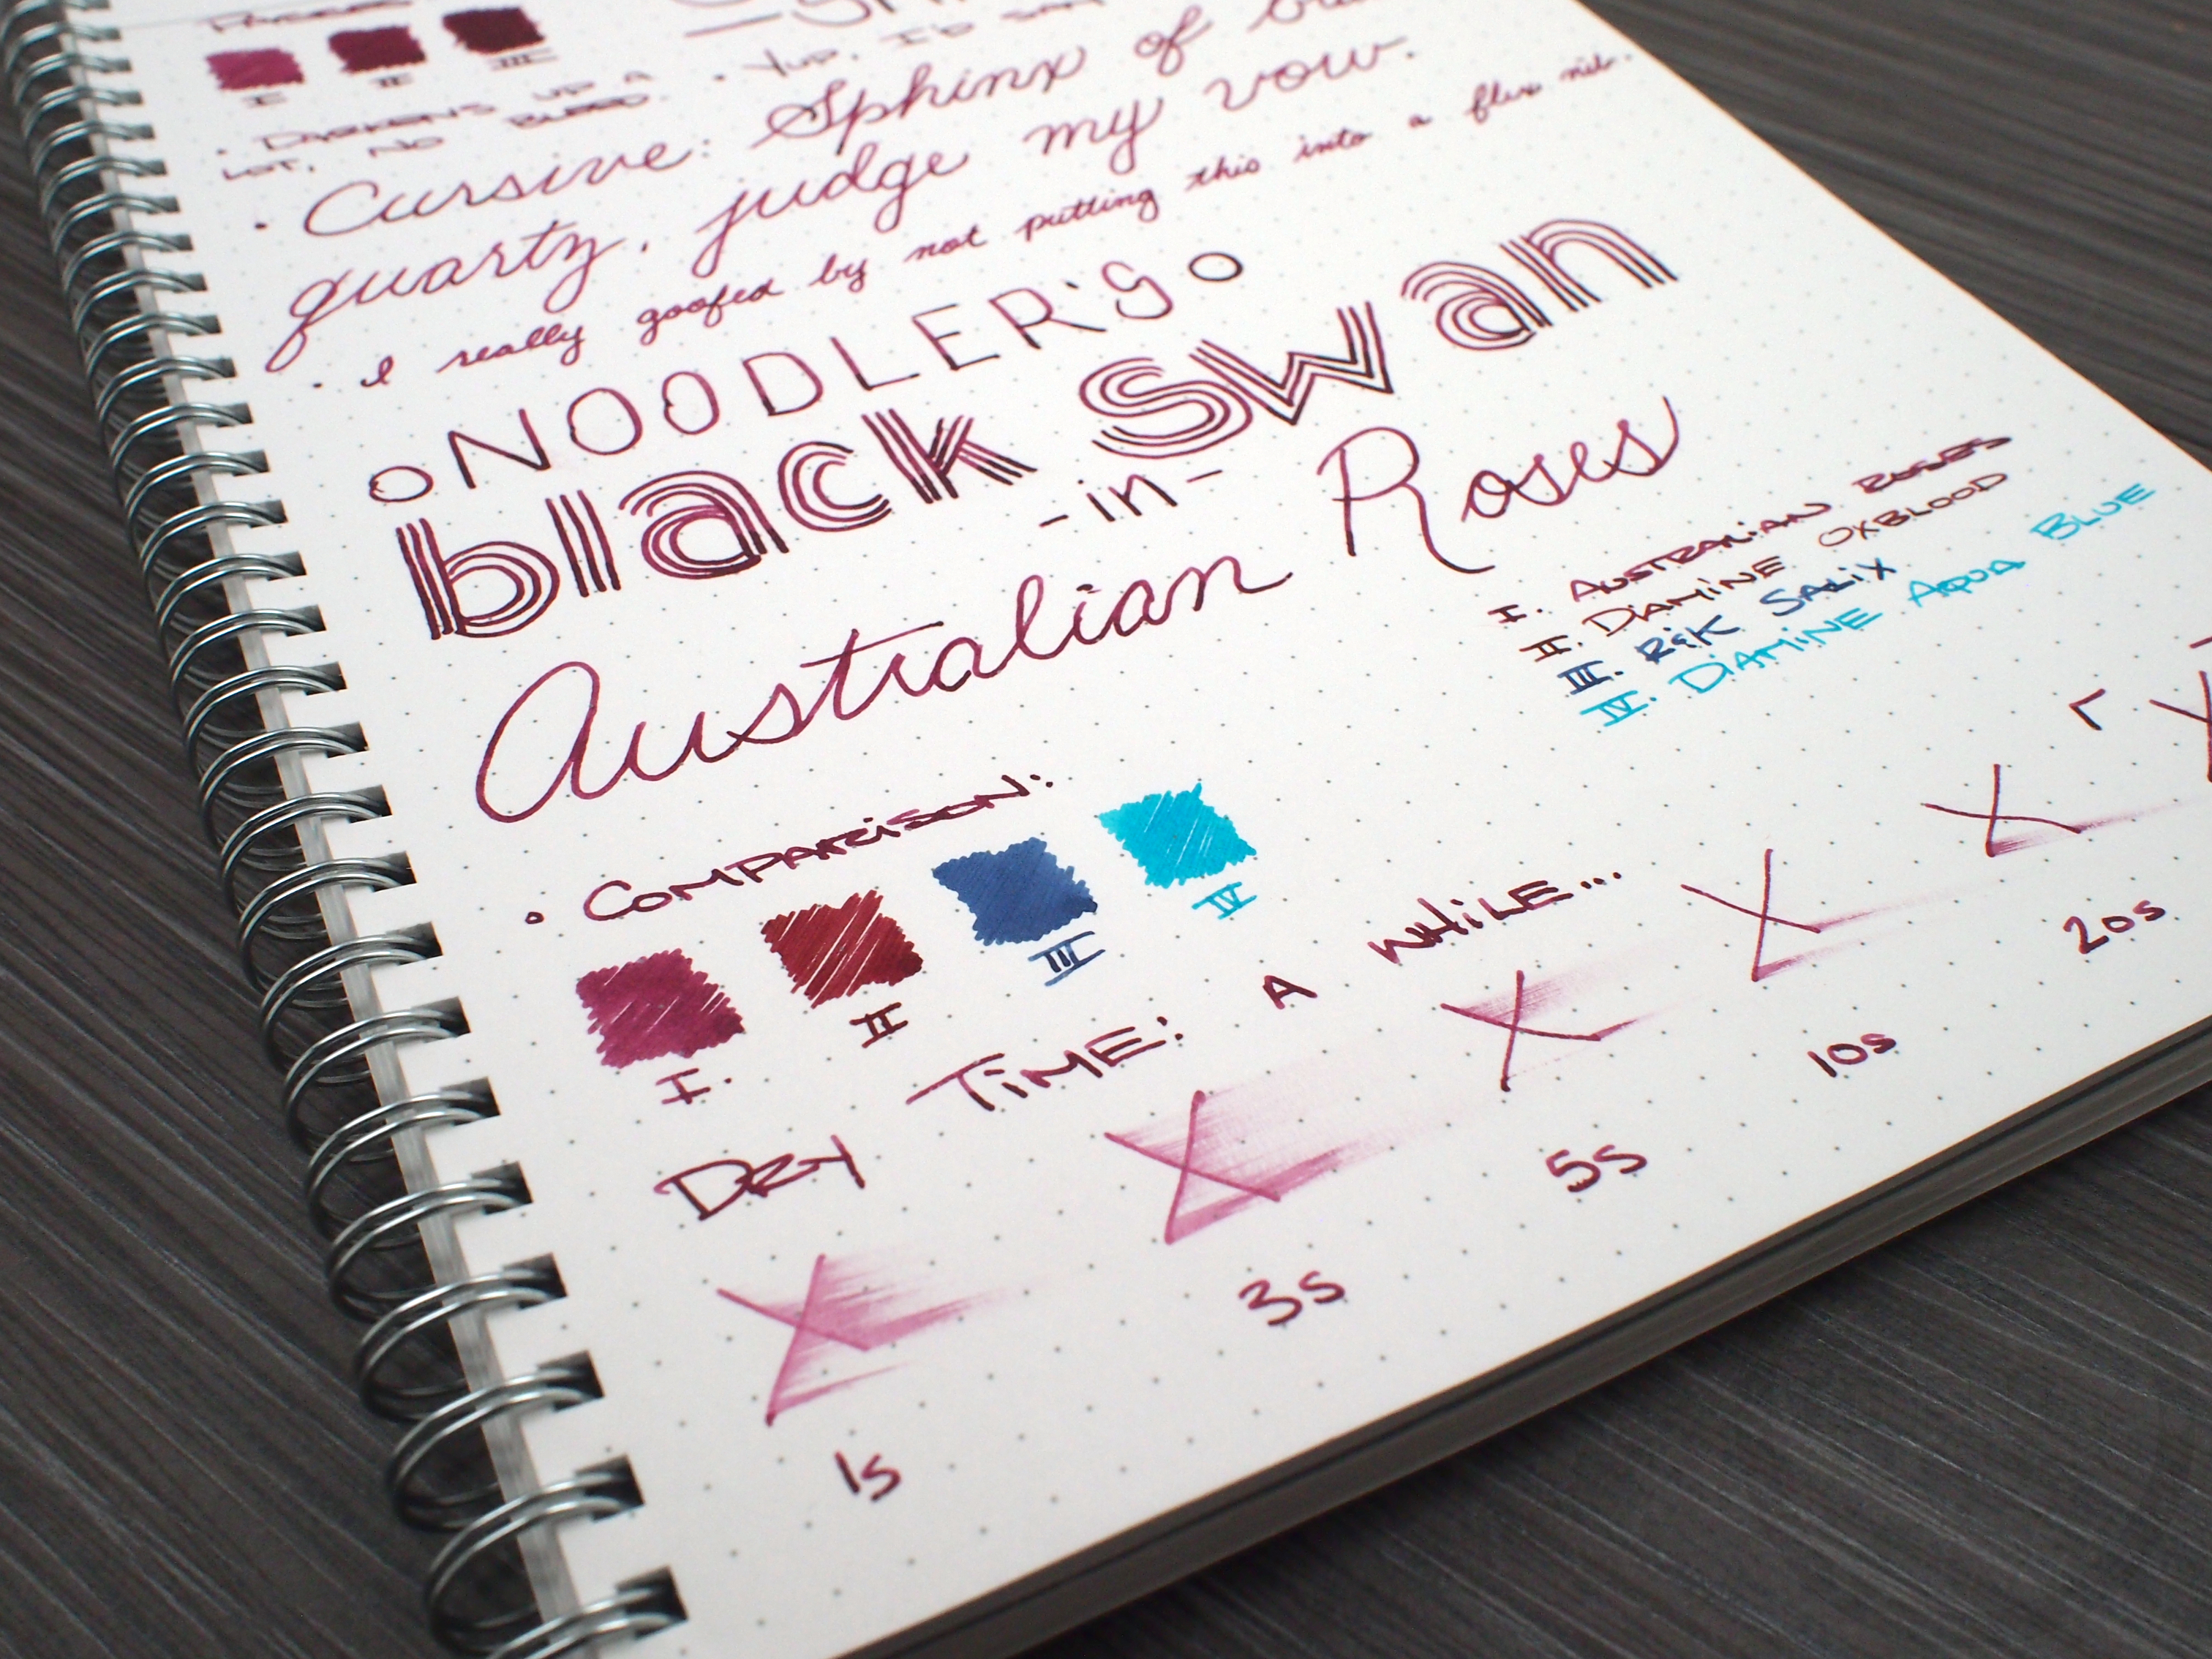 I II III
• DARKENS UP A
LOT, NO BLEED.
• Yup, I'd say
• Cursive: Sphinx of
quartz, judge my vow.
• I really goofed by not putting this into a flex nib.
NOODLER'S
black swan
-in-
Australian Roses
I. AUSTRALIAN ROSES
II. DIAMINE OXBLOOD
III. R&K SALIX
IV. DIAMINE AQUA BLUE
• COMPARISON:
I. II III IV
DRY TIME: A WHILE...
1s 3s 5s 10s 20s